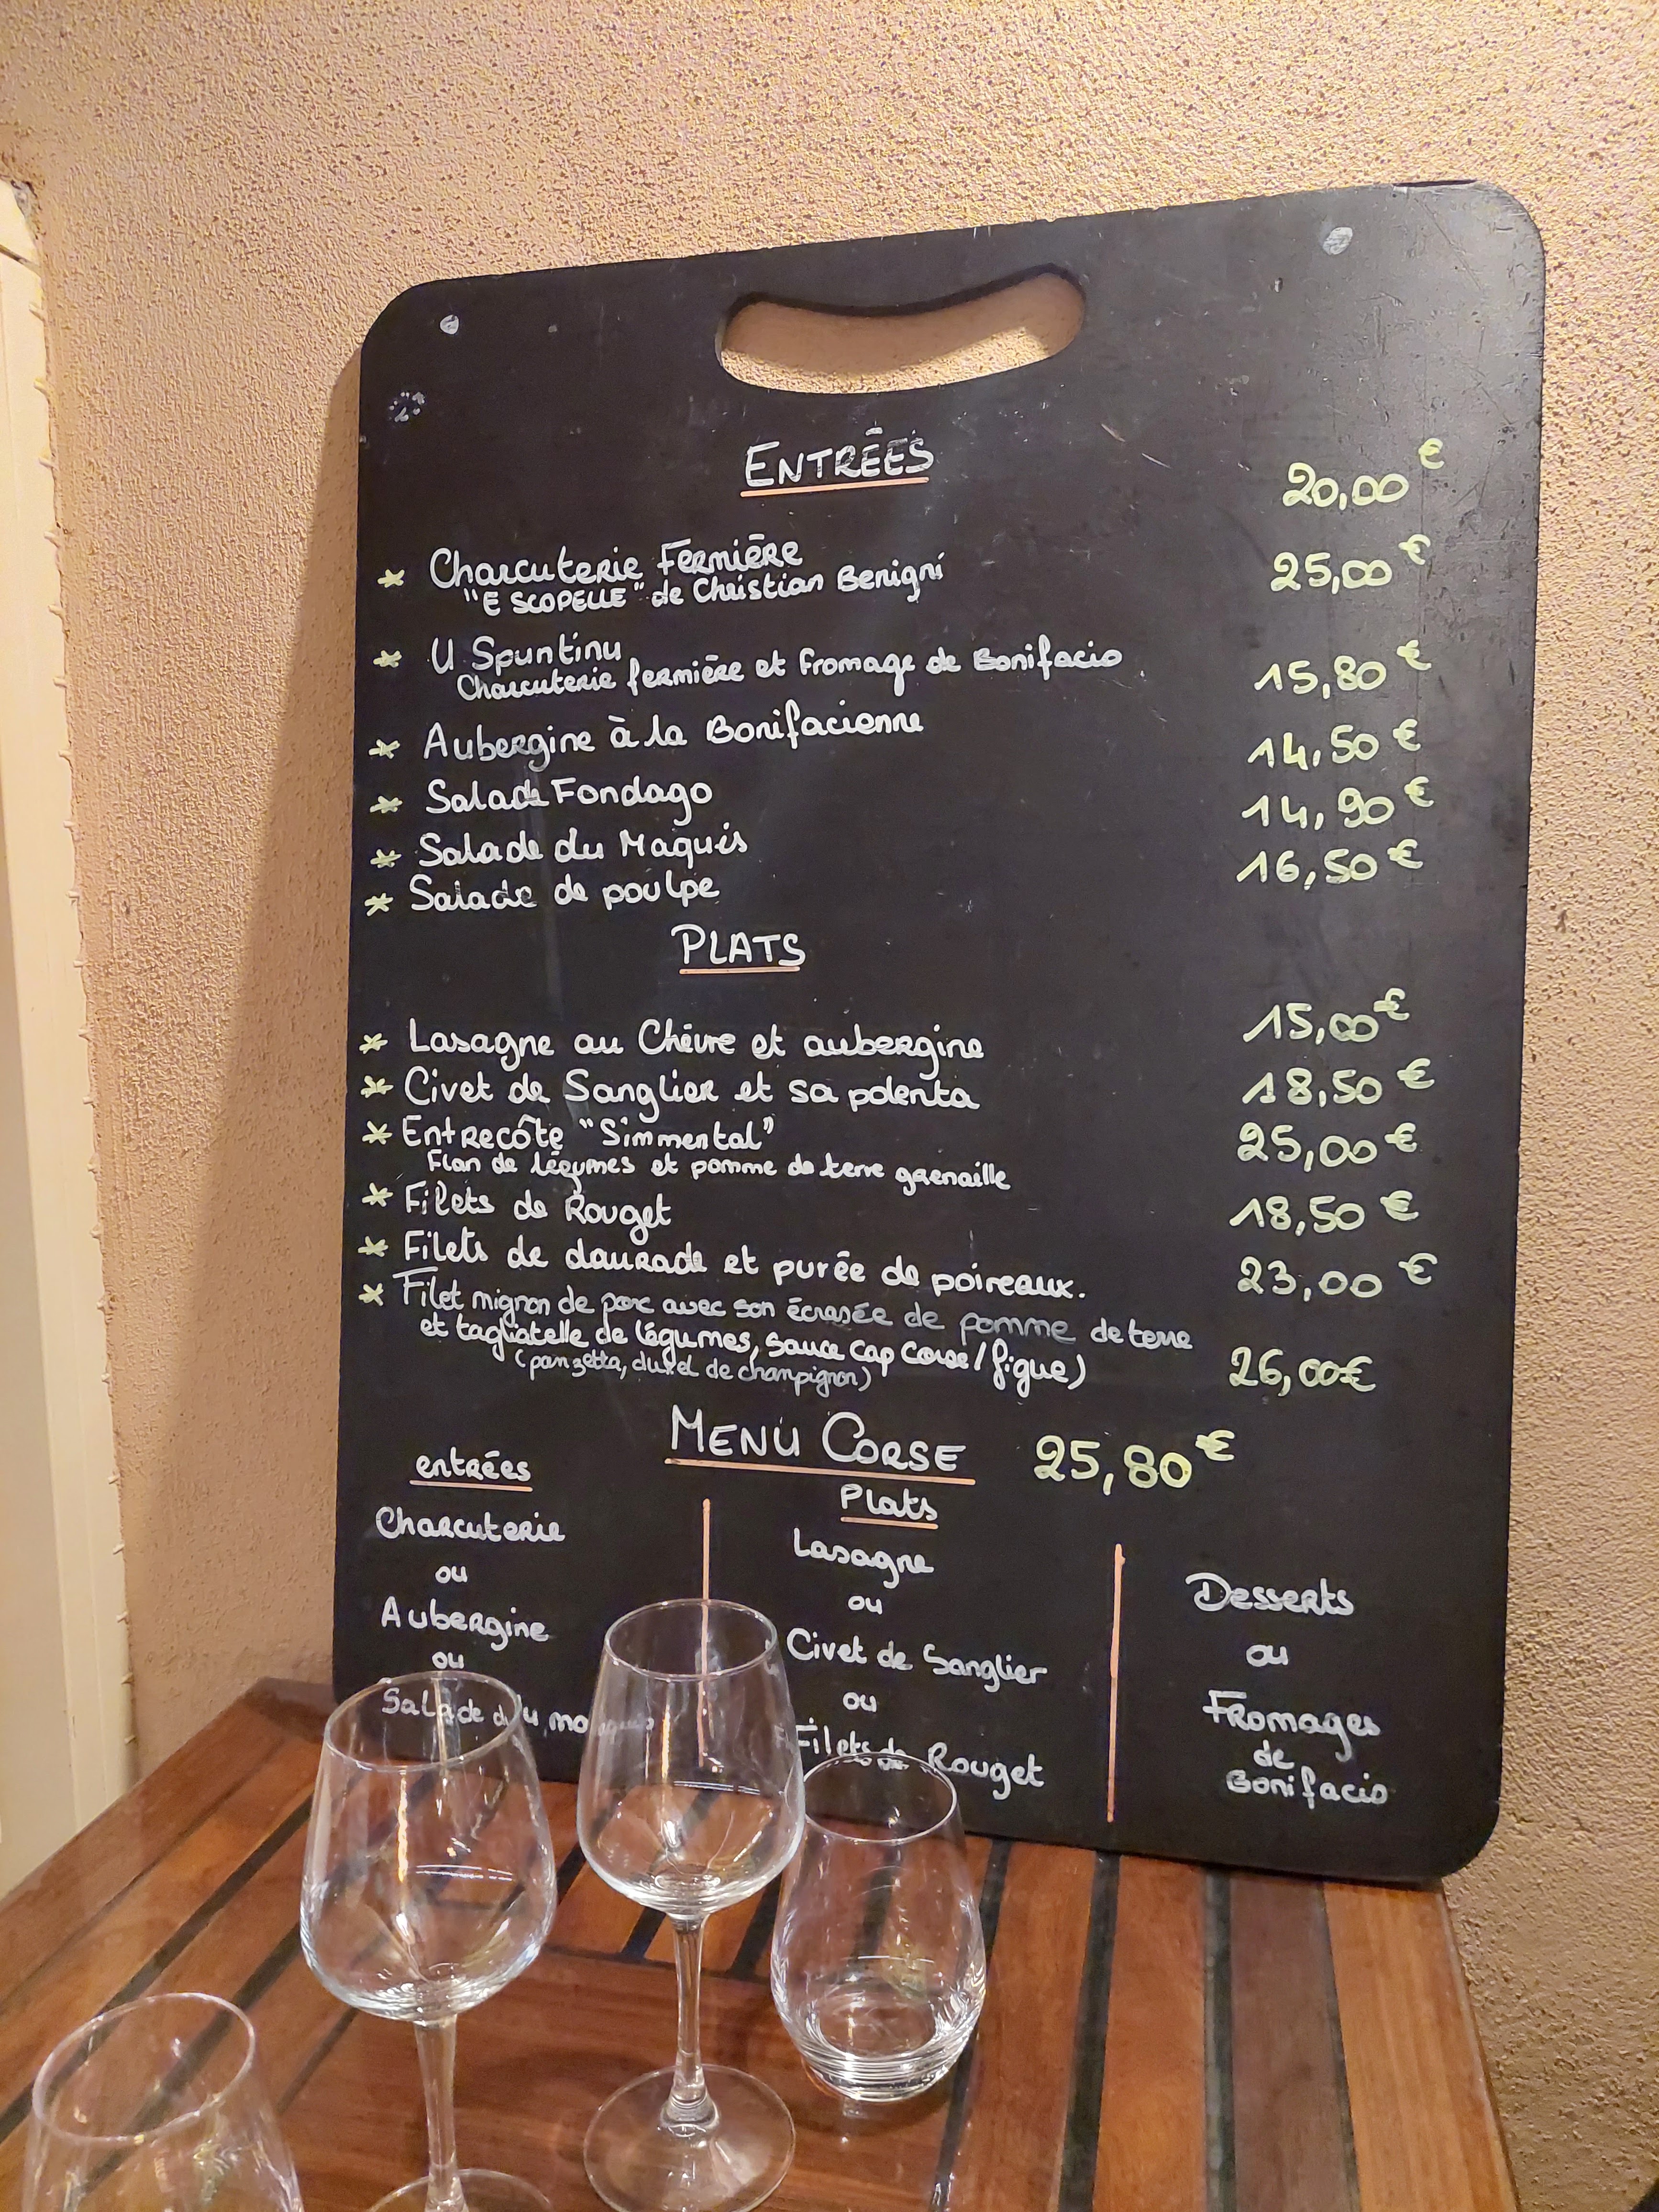 ENTRÉES
20,00 €
* Charcuterie Fermière
"E SCOPELLE" de Christian Benigni
25,00 €
* U Spuntinu
Charcuterie fermière et Fromage de Bonifacio
15,80 €
* Aubergine à la Bonifacienne
14,50 €
* Salade Fondago
14,90 €
* Salade du Maquis
16,50 €
* Salade de poulpe
PLATS
15,00 €
* Lasagne au Chèvre et aubergine
18,50 €
* Civet de Sanglier et sa polenta
25,00 €
* Entrecôte "Simmental"
Flan de légumes et pomme de terre grenaille
18,50 €
* Filets de Rouget
23,00 €
* Filets de daurade et purée de poireaux.
* Filet mignon de porc avec son écrasée de pomme de terre
et tagliatelle de légumes, sauce cap corse/figue)
26,00€
(panzetta, duxel de champignon)
MENU CORSE 25,80 €
entrées
Charcuterie
ou
Aubergine
ou
Salade du maquis
Plats
Lasagne
ou
Civet de Sanglier
ou
Filets de Rouget
Desserts
ou
Fromages
de
Bonifacio